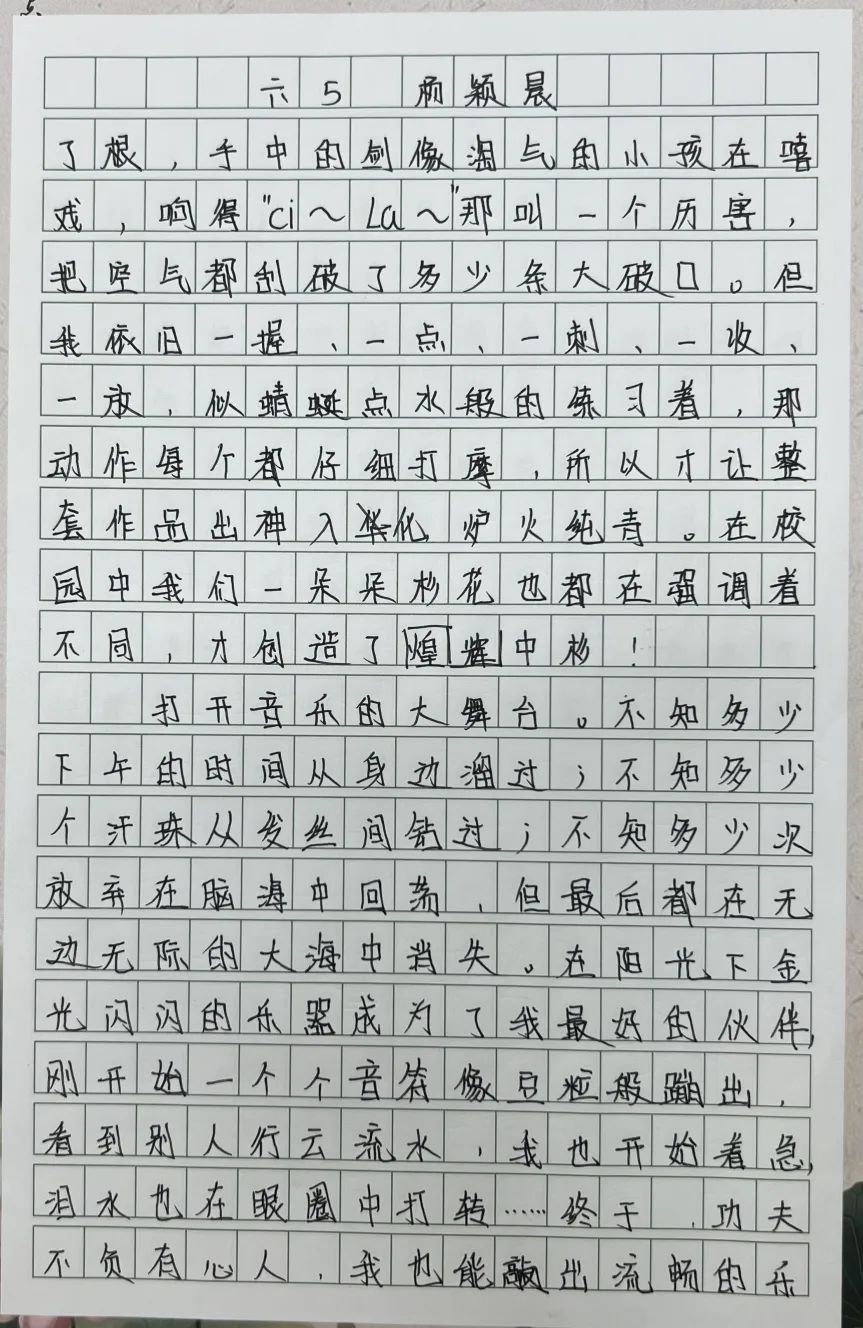 六5 杨颖晨
了根，手中的剑像淘气的小孩在嘻
戏，响得"ci～La～"那叫一个历害，
把空气都刮破了多少条大破口。但
我依旧一握、一点、一刺、一收、
一放，似蜻蜓点水般的练习着，那
动作每个都仔细打摩，所以才让整
套作品出神入华化炉火纯青。在校
园中我们一朵朵杉花也都在强调着
不同，才创造了煌辉中杉！
打开音乐的大舞台。不知多少
下午的时间从身边溜过；不知多少
个汗珠从发丝间钻过；不知多少次
放弃在脑海中回荡，但最后都在无
边无际的大海中消失。在阳光下金
光闪闪的乐器成为了我最好的伙伴，
刚开始一个个音符像豆粒般蹦出，
看到别人行云流水，我也开始着急，
泪水也在眼圈中打转……终于，功夫
不负有心人，我也能敲出流畅的乐